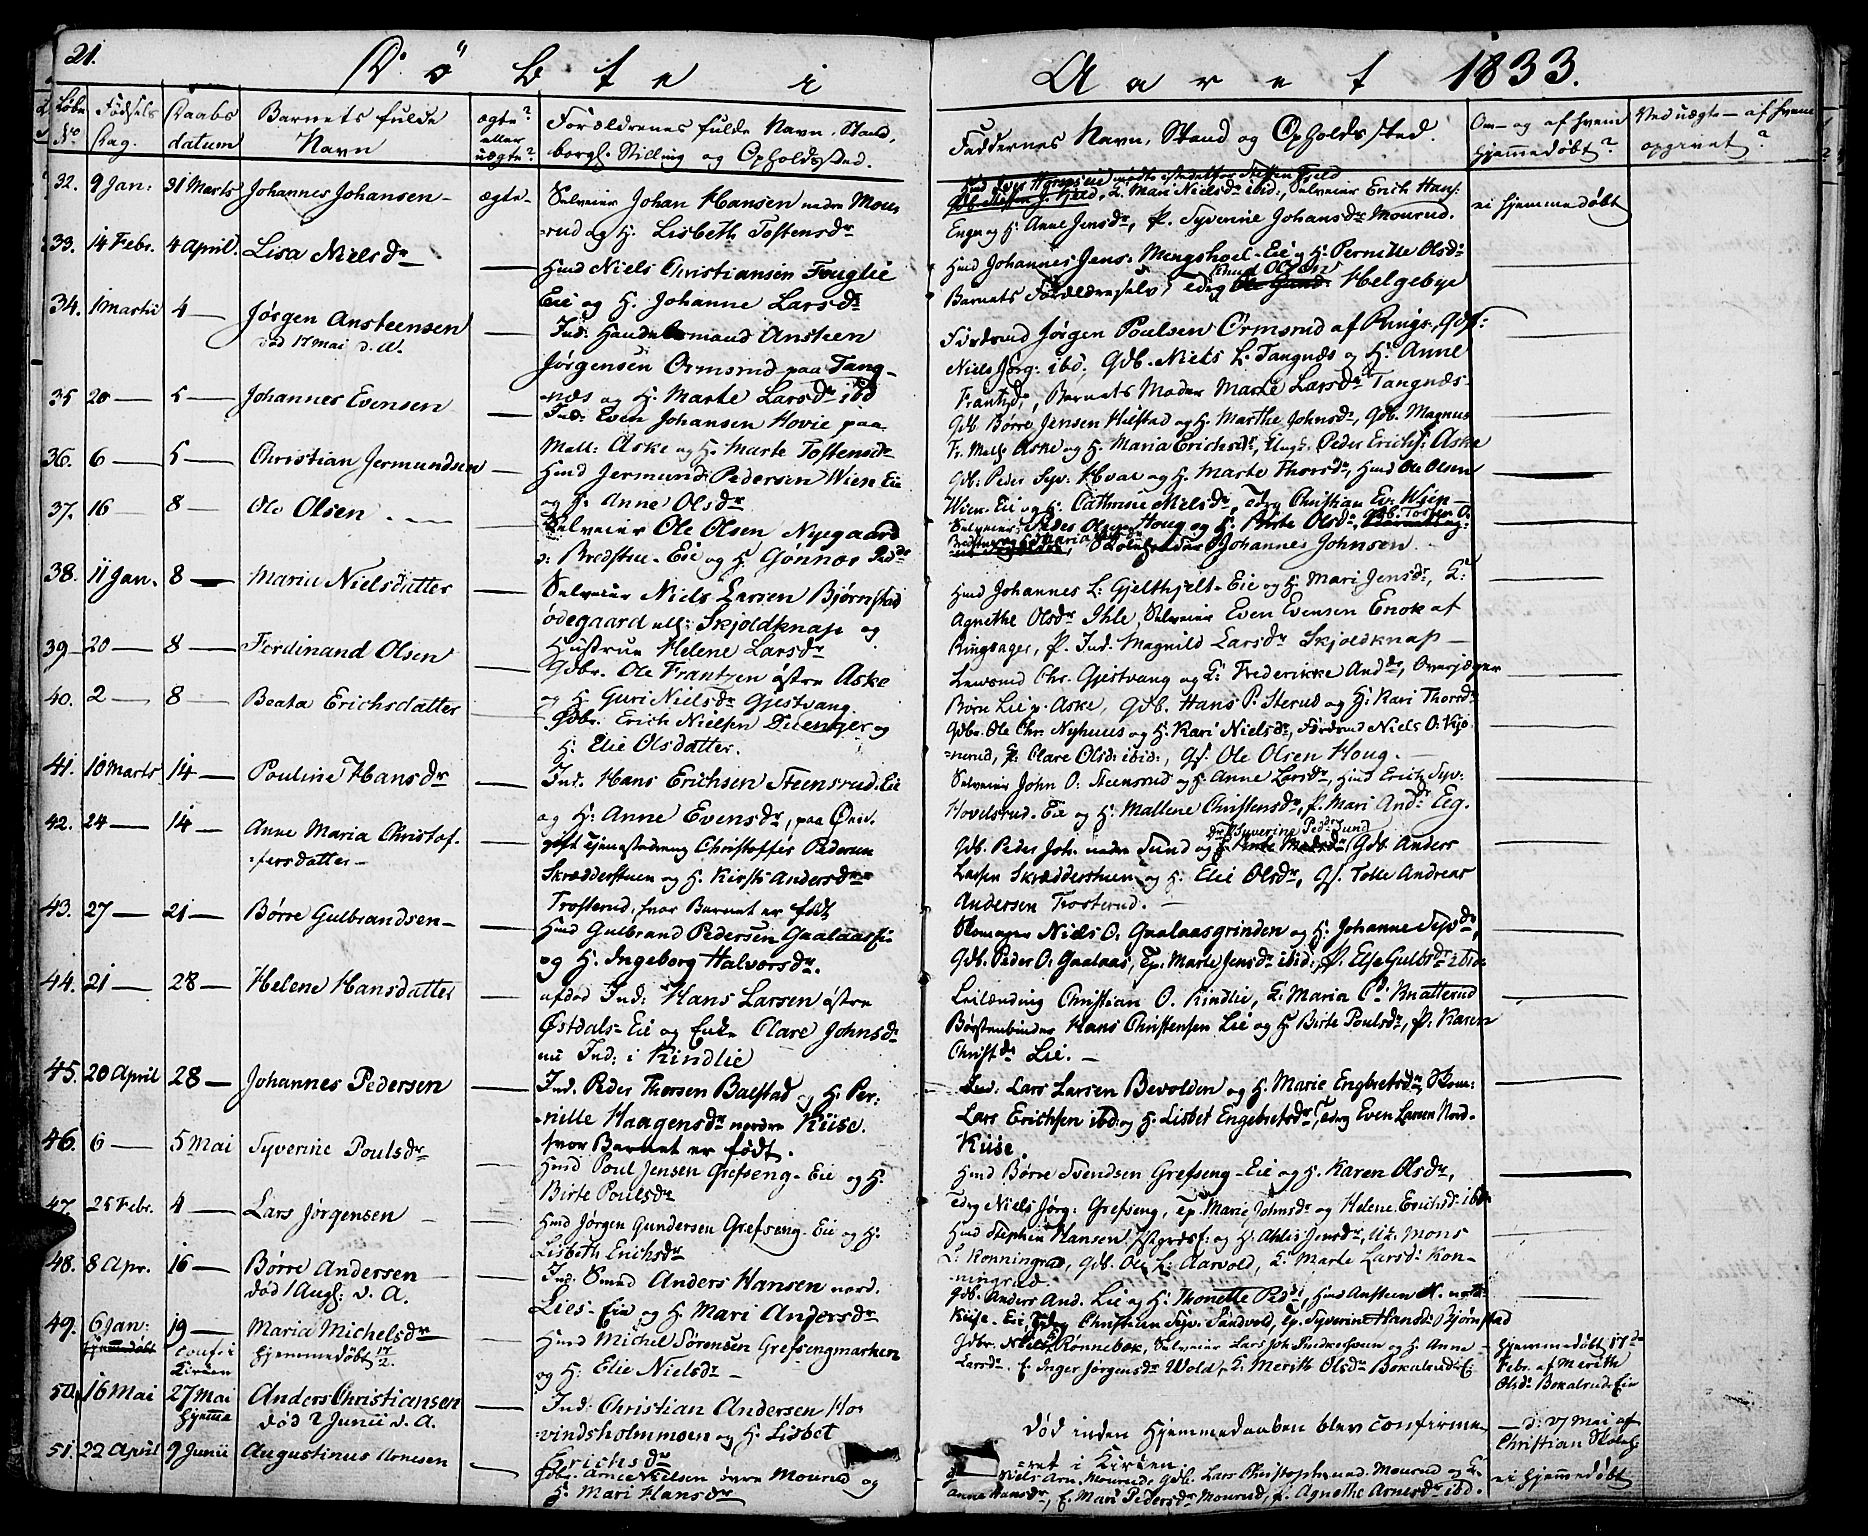 21.
Døbte i
Aaret 1833.
Løbe No
Fødsels Dag.
Daabs datum
Barnets fulde Navn
ægte? eller uægte?
Forældrenes fulde Navn, Stand, borgl. Stilling og Opholdssted.
Faddernes Navn, Stand og Opholdssted.
Om- og af hvem hjemmedøbt?
Ved uægte - af hvem opgivet?
32. 9 Jan: 31 Marts Johannes Johansen - ægte -
Selveier Johan Hansen nedre Mou-
rud og H. Lisbeth Tostensdr
G. Mari Nielsdr ibid:, Selveier Erich Hans:
Enge og H: Anne Jensdr, P. Syverine Johansdr Mourud.
ei hjemmedøbt
33. 14 Febr. 4 April. Lisa Nielsdr
Huusd Niels Christiansen Fouglie
Eie og H. Johanne Larsdr
Huusd Johannes Jens: Mengshoel-Eie og H: Pernille Olsdr
Barnets Forældre selv, Helgebye
34. 1 Martii 4 - Jørgen Ansteensen
død 17 Mai d. A.
Ind: Handelsmand Ansteen
Jørgensen Ormsrud paa Tang-
næs og H: Marte Larsdr ibd
Jørgen Poulsen Ormsrud af Rings.
Niels Jørg: ibd, Gdb. Niels L. Tangnæs og H: Anne
Frantzd:, Barnets Moder Marte Larsdr Tangnæs -
35 20 - 5 - Johannes Evensen
Ind: Even Johansen Hovie paa
Mell: Aske og H: Marte Tostensdr
Gdb Børre Jensen Hielstad og H: Marthe Johnsdr, Gdb. Magnus
Aske og H. Maria Erichsdr, Ungk. Peder Erichs: Aske
36. 6 - 5 - Christian Jermundsen -
Huusd Jermund Pedersen Wien Eie
og H: Anne Olsdr
Gdb: Peder Syv: Hval og H. Marte Thorsdr, Huusd Ole Olsen
Wien-Eie og H: Cathrine Nielsdr, Tdrg Christian Ev: Wien -
37. 16 - 8 - Ole Olsen
Selveier Ole Olsen Nyegaard
d: Bredstue-Eie og H: Gønnor
Selveier: Peder Olsen Houg og H. Birte Olsdr, Gdb. Tosten O.
Skoleholder Johannes Johnsen
38. 11 Jan. 8 - Maria Nielsdatter
Selveier Niels Larsen Bjørnstad
ødegaard ell: Skjoldknap og
Hustrue Helene Larsdr
Huusd Johannes L: Gjelthjelt-Eie og H: Mari Jensdr, G:
Agnethe Olsdr Ihle, Selveier Even Evensen Enok af
Ringsager, P. Ind. Magnild Larsdr Skjoldknap -
39 - 20 - 8 - Ferdinand Olsen
Gdbr. Ole Frantzen østre Aske
og H. Guri Nielsdr Gjestvang.
Lensmd Chr. Gjestvang og G: Frederikke Anddr, Overjæger
Børn Lie p. Aske, Gdb. Hans P. Sterud og H: Kari Thorsdr
40. 2 - 8 - Beata Erichsdatter
Gdbr. Erich Nielsen Duenger og
H: Elie Olsdatter.
Gdbr. Ole Chr. Nyhuus og H. Kari Nielsdr, Niels O: Kjo
nerud, P: Clare Olsd: ibid:, Gs. Ole Olsen Houg. -
41. 10 Marts 14 - Pouline Hansdr
Ind: Hans Erichsen Steensrud-Eie
og H: Anne Evensdr,
Selveier John O: Steensrud og H: Anne Larsdr, Huusd Erich Syv:
Hovelsrud-Eie og H: Mallene Christensdr, P. Mari Anddr Eig.
42. 24 - 14 - Anne Maria Christof-
fersdatter -
gift Tjenestedreng Christoffer Pedersen
Skrædderstuen og H. Kirsti Andersdr
Trosterud, hvor Barnet er født
Gdb. Peder Joh. nedre Sund og Syverine Peddr Sund Gdb. Anders
Larsen Skrædderstuen og H. Elie Olsdr, Gs. Tolle Andreas
Andersen Trosterud. -
43. 27 - 21 - Børre Gulbrandsen -
Huusd Gulbrand Pedersen Gaalaas
og H. Ingeborg Halvorsdr.
Skomager Niels O: Gaalaasgrinden og H: Johanne Syvdr,
Gdb. Peder O: Gaalaas, Tp: Marte Jensdr ibid:, P. Else Gulbsdr ibid
44. 21 - 28 - Helene Hansdatter
afdød Ind: Hans Larsen østre
Østdals-Eie og Enke Clare Johnsdr
nu Ind: i Kindlie
Leilænding Christian O. Kindlie, G: Maria Cd: Knatterud
Børstenbinder Hans Christensen Lie og H: Birte Poulsdr, P. Karen
Christdr Lie. -
45. 20 April 28 - Johannes Pedersen
Ind. Peder Thorsen Balstad og H: Per-
nille Haagensdr nordre Kiise.
hvor Barnet er født.
Ind. Lars Larsen Bevolden og H. Marie Engbretsdr, Skom:
Lars Erichsen ibd: og H. Lisbet Engebretsdr, Tdrg Even Larsen Nord-
Kiise.
46. 6 - 5 Mai Syverine Poulsdr
Huusd Poul Jensen Grefseng-Eie og H:
Birte Poulsdr
Huusd Børre Svendsen Grefseng-Eie og H. Karen Olsdr,
Tdrg Niels Jørg: Grefseng, Tp. Marie Johnsdr og Helene Erichsdr ibd
47. 25 Febr. 4 - Lars Jørgensen
Huusd Jørgen Gundersen Grefseng-Eie og H:
Lisbeth Erichsdr
Huusd Stephen Hansen og H: Jensdr, Mons
L: Konningrud, Gdb. Ole L: Aarvold, G: Marte Larsd: Kon-
ningrud
48. 8 Apr. 16 - Børre Andersen
død 1 Aug: d. A.
Ind. Smed Anders Hansen nord.
Lies-Eie og H. Mari Andersdr
Gdb. Anders And. Lie og H: Thonette Pdr, Huusd Ansteen nord
Kiise-Eie, Tdrg Christian Syv. Sandvold, Tp. Syverine Hansdr Bjørnstad
49. 6 Jan: 19 - Maria Michelsdr
hjemmedøbt conf. i Kirken hjemmedøbt 17/2.
Huusd Michel Sørensen Grefsengmarken
og H: Elie Nielsdr -
Gdbr. Niels Rønnebek, Selveier Lars Joh. og H. Anne -
Larsdr. E. Inger Jørgensdr Wold, G: Merith Olsdr Bokalrud E.
Hjemmedøbt 17de
Febr. af Merith
Olsdr Bokalrud Eie
50. 16 Mai 27 Mai hjemme Anders Christiansen
død 2 Junii d. A.
Ind: Christian Andersen Ho-
vindsholmmoen og H. Lisbet
Erichsdr
Død inden Hjemmedaaben blev confirme-
ret i Kirken.
- d. 27 Mai af
Christian Skoleh.
51. 22 April 9 Junii Augustinus Arnesen
Gdbr. Arne Nielsen øvre Mourud og
H. Mari Hansdr
Niels Arn. Mourud, Gdb. Lars Christophs: ned. Mourud og G:
Anne Hansdr, E. Mari Pedersdr Mourud, P. Agnethe Arnesdr ibd.
ei hjemmedøbt